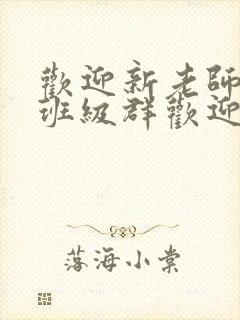 歡迎新老師
班級群歡迎
落海小棠